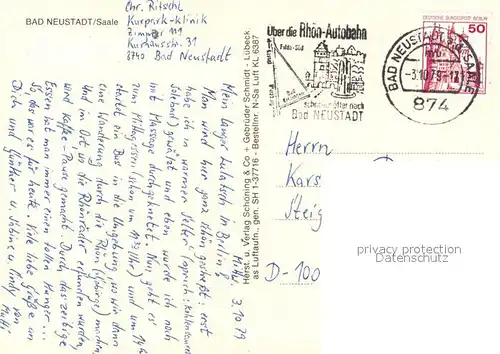 BAD NEUSTADT/Saale
Chr. Ritschl
Kurpark-Klinik
Zimmer 111
Kurhausstr. 31
8740 Bad Neustadt
Über die Rhön-Autobahn
Fulda-Süd
schneller öfter nach
Bad NEUSTADT
BAD NEUSTADT a.d. SAALE
-3.10.79-17
874
DEUTSCHE BUNDESPOST BERLIN
50
Herst. u. Verlag Schöning & Co + Gebrüder Schmidt - Lübeck
as Luftaufn., gen. SH 1-37716 - Bestellnr. N-Sa Luft KL 6387
Mittw. 3.10.79
Mein langer in Berlin!
Man wird hier ganz schön gestreßt: erst
habe ich in warmem Selter
gewälzt und eben wurde ich noch
mit Massage durchgeknetet. Nun geht es
zum Mittagessen (schon um 11³⁰ Uhr) und um
startet ein Bus in die Umgebung, wo wir dann
eine Wanderung durch die Rhön machen,
und im Ort, wo die Rhönräder erfunden wurden,
wird Kaffee-Pause gemacht. Durch das zeitige
Essen ist man immer einen tollen Hunger...
So, das war es für heute. Viele liebe Grüße an
Dich und Günther u. Sabine u. Cindy von
Mutti
Herrn
Kars
Steig
D-100
privacy protection
Personal Data